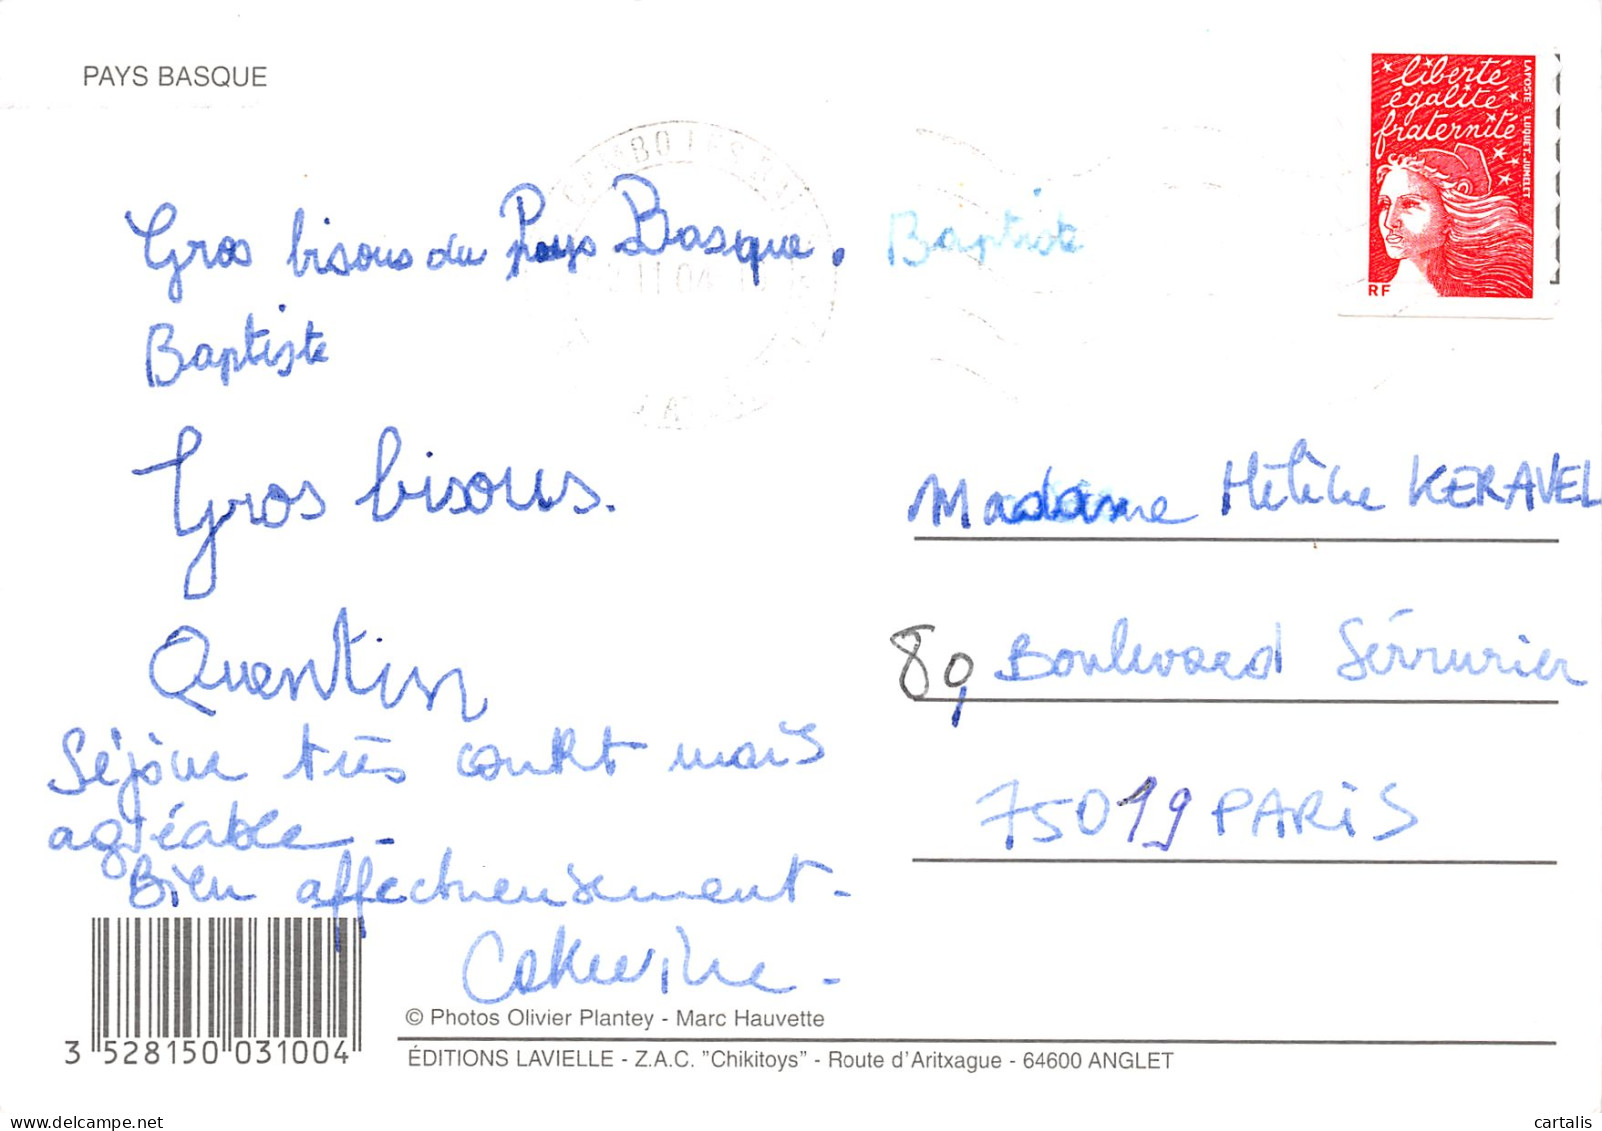 PAYS BASQUE
liberté
égalité
fraternité
LA POSTE LUQUET-JUMELET
RF
Gros bisous du Pays Basque. Baptiste
Baptiste
Gros bisous.
Quentin
Séjour très court mais
agréable -
Bien affectueusement -
Catherine -
Madame KERAVEL
80, Boulevard Sérrurier
75019 PARIS
3 528150 031004
© Photos Olivier Plantey - Marc Hauvette
ÉDITIONS LAVIELLE - Z.A.C. "Chikitoys" - Route d'Aritxague - 64600 ANGLET
cartalis